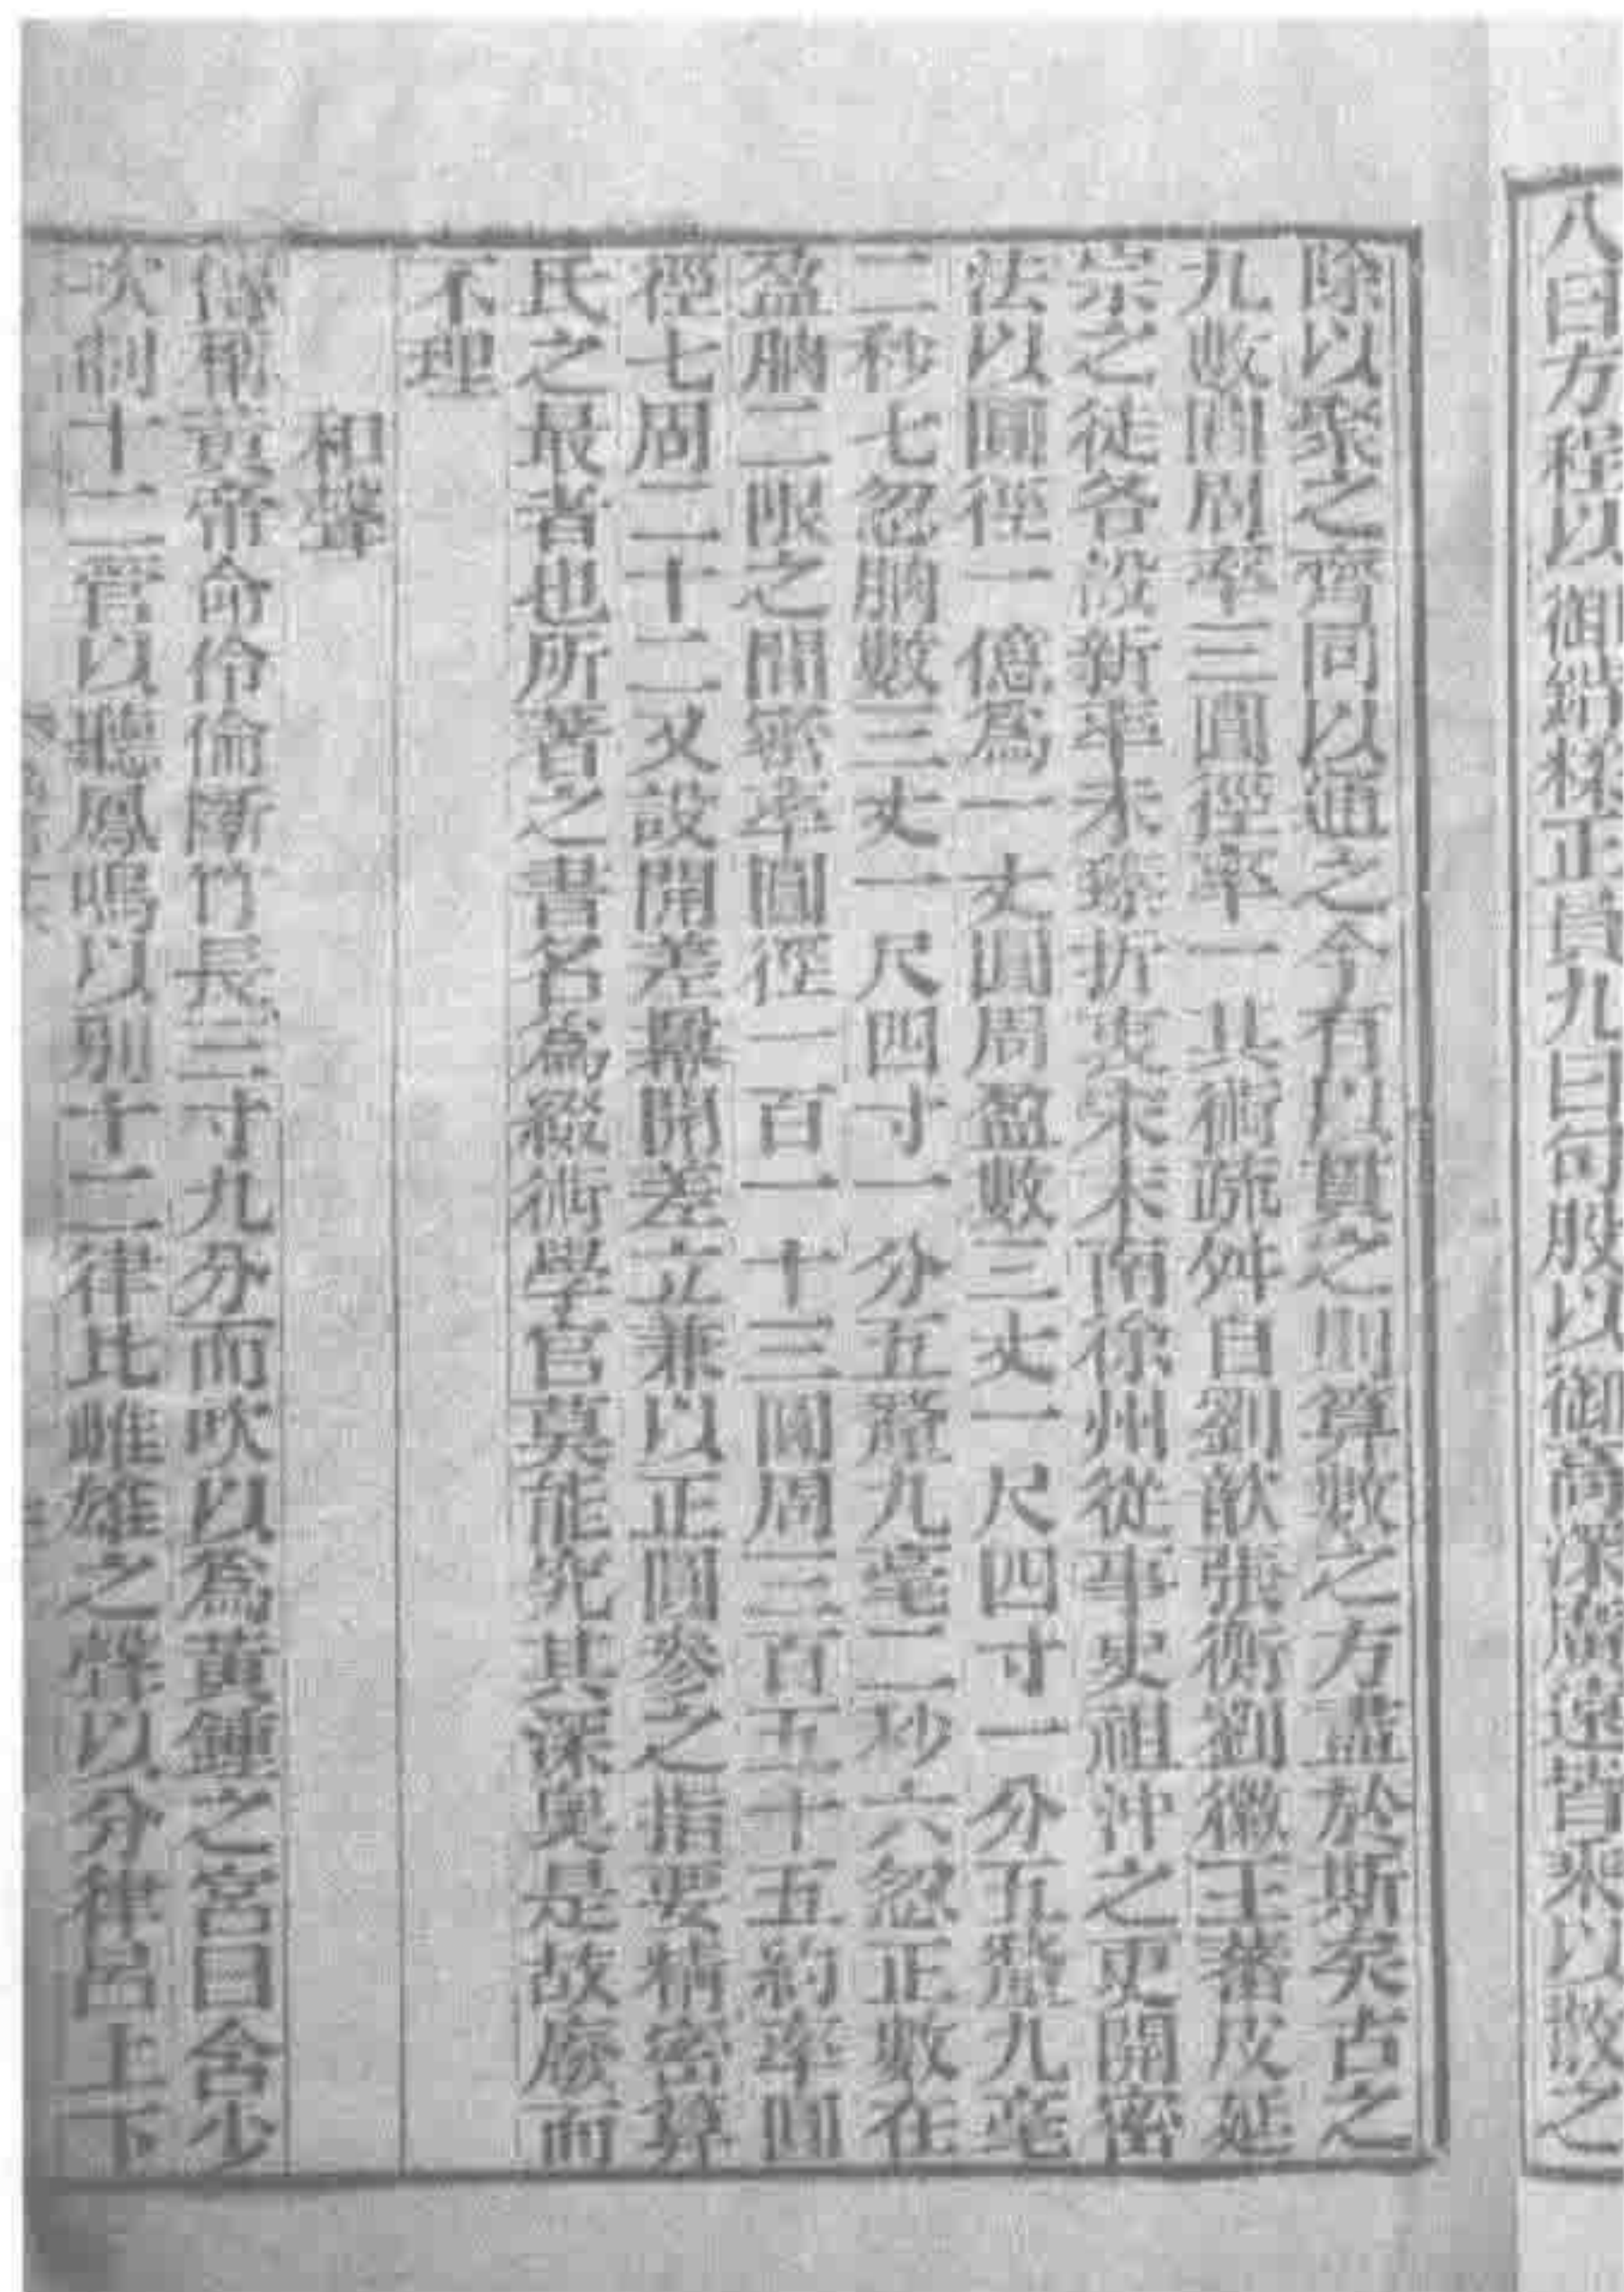 八曰方程以御錯糅正負九曰句股以御高深廣遠皆乘以散之
除以聚之齊同以通之今有以貫之則算數之方盡於斯矣古之
九數圓周率三圓徑率一其術疏舛自劉歆張衡劉徽王蕃皮延
宗之徒各設新率未臻折衷宋末南徐州從事史祖沖之更開密
法以圓徑一億為一丈圓周盈數三丈一尺四寸一分五釐九毫
二秒七忽朒數三丈一尺四寸一分五釐九毫二秒六忽正數在
盈朒二限之間密率圓徑一百一十三圓周三百五十五約率圓
徑七周二十二又設開差冪開差立兼以正圓參之指要精密算
氏之最者也所著之書名為綴術學官莫能究其深奧是故廢而
不理
和聲
傳稱黃帝命伶倫斷竹長三寸九分而吹以為黃鍾之宮曰含少
次制十二管以聽鳳鳴以別十二律比雌雄之聲以分律呂上下